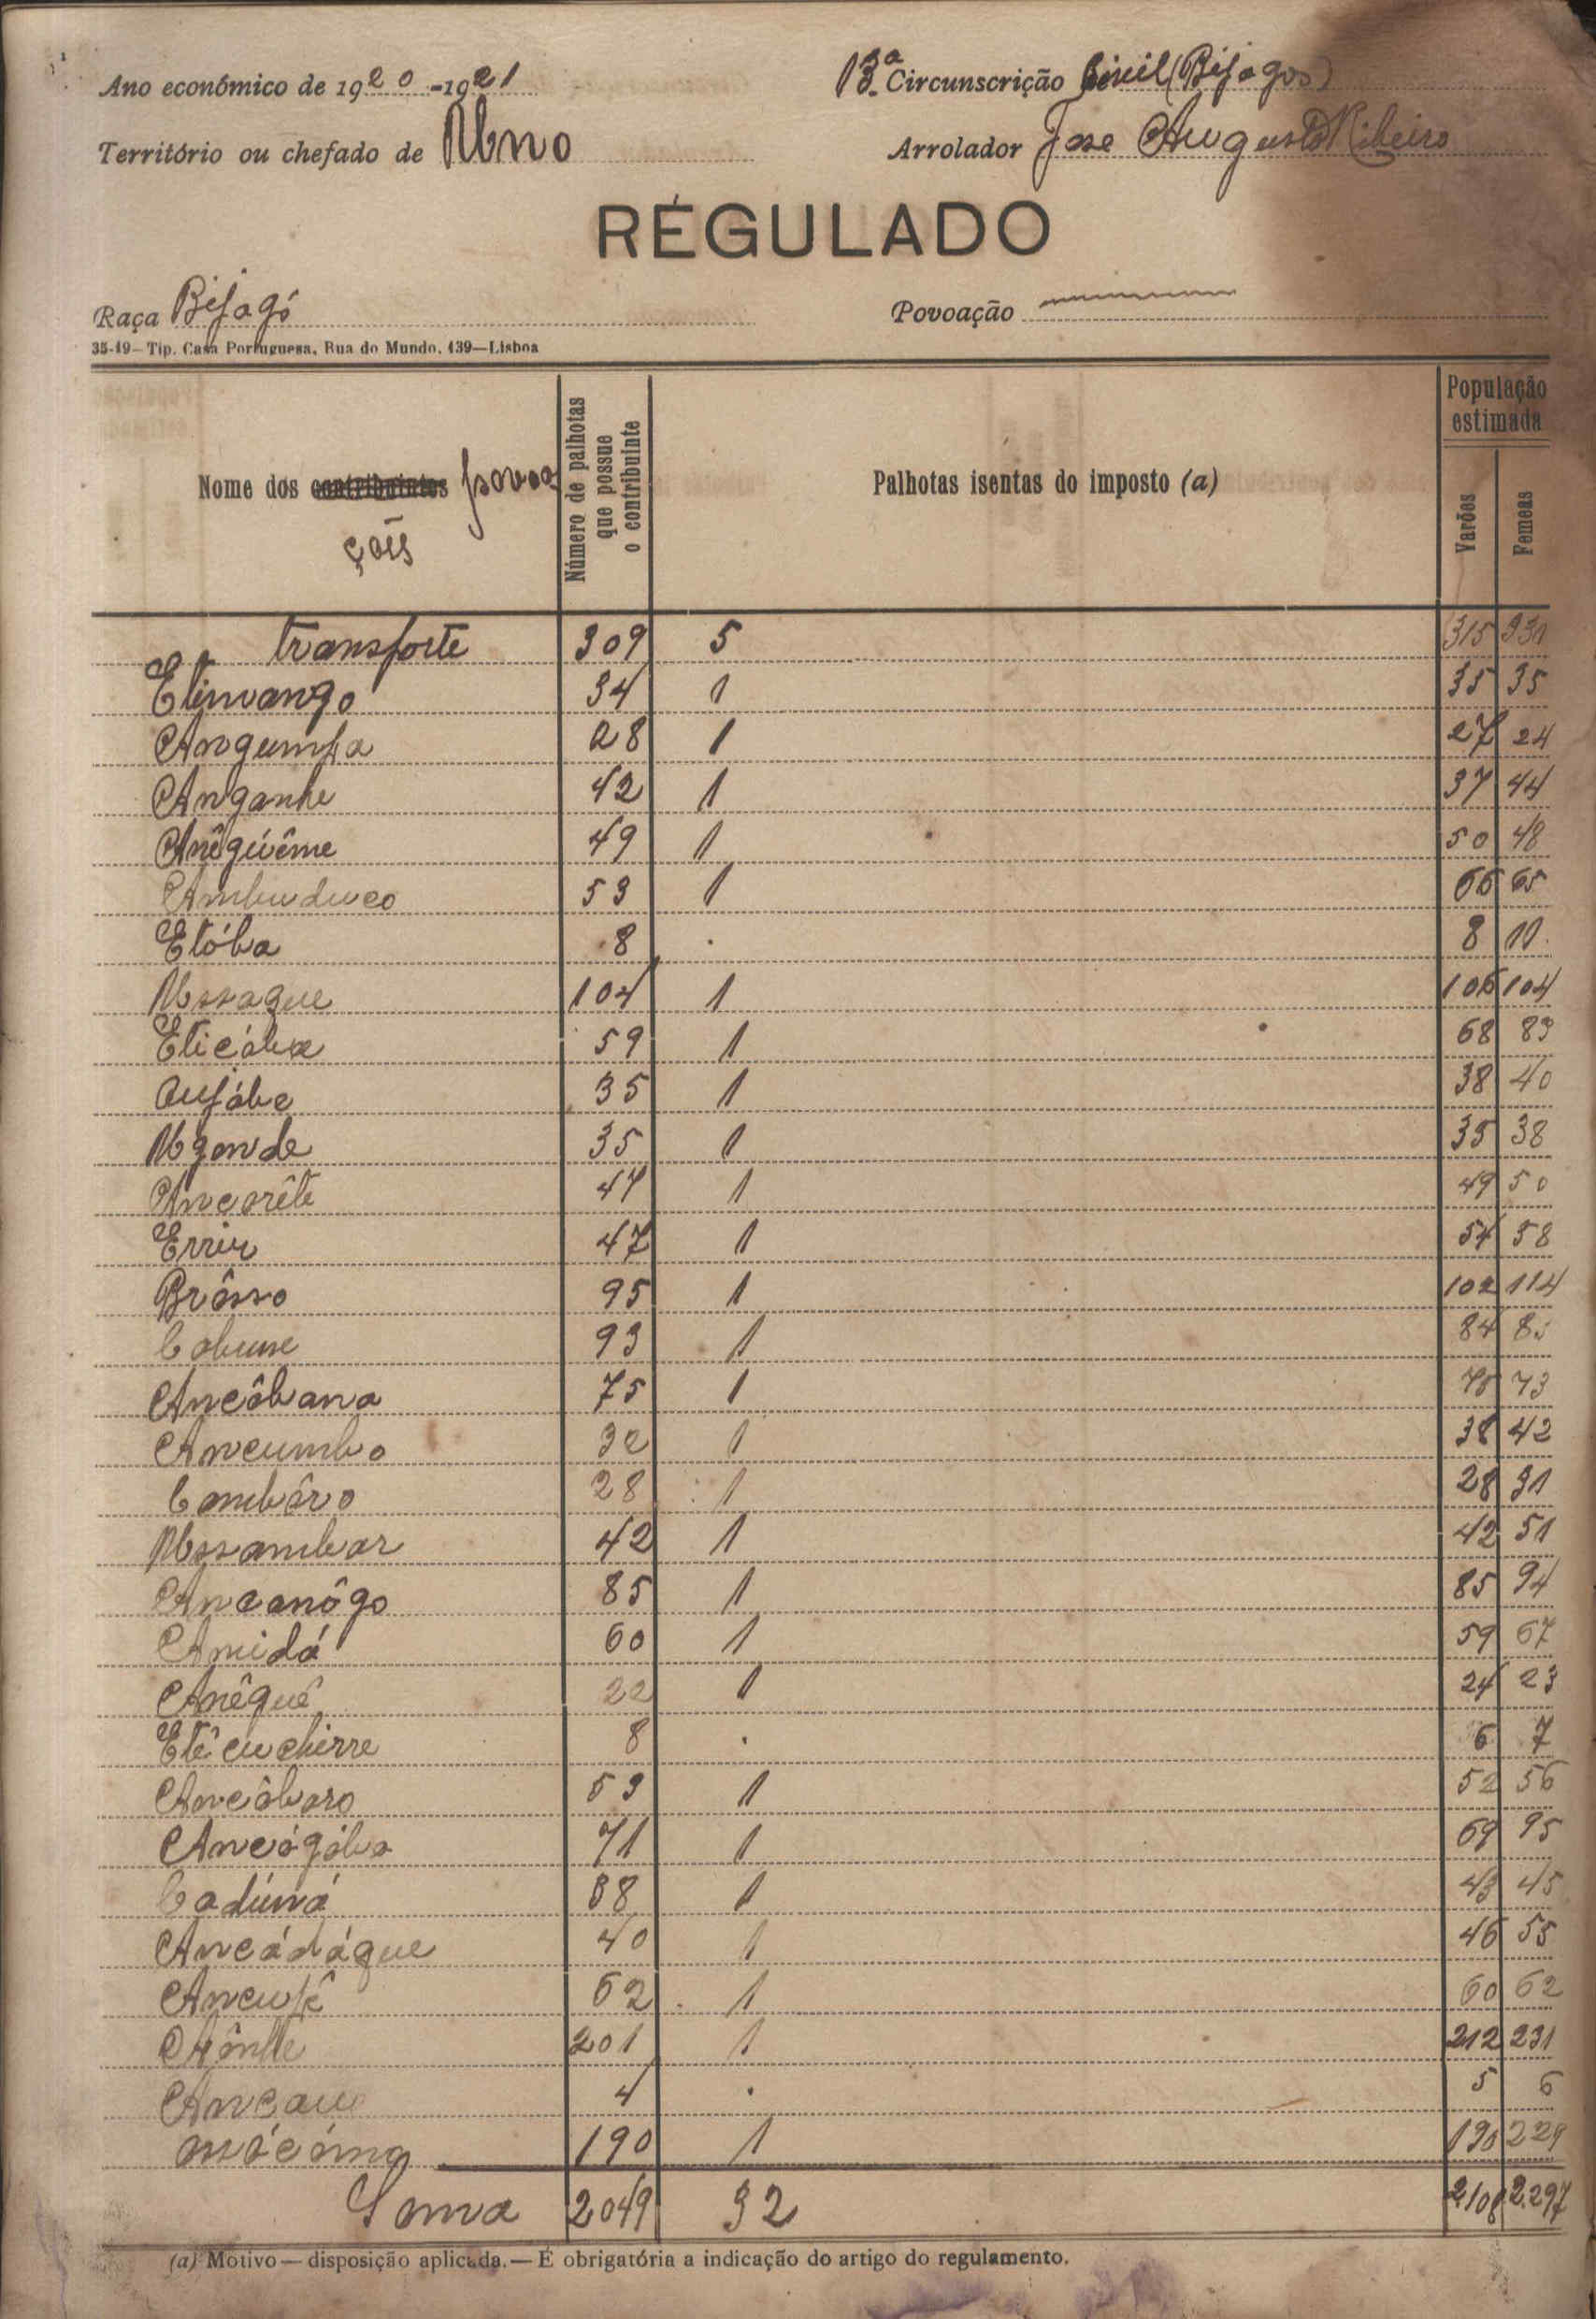 Ano económico de 1920-1921
13ª Circunscrição Civil (Bijagos)
Território ou chefado de Uno
Arrolador Jose Augusto Ribeiro
REGULADO
Raça Bijagó
Povoação
35-19—Tip. Casa Portuguesa, Rua do Mundo, 139—Lisboa
Nome dos contribuintes povoa
ções
Número de palhotas que possue o contribuinte
Palhotas isentas do imposto (a)
População estimada
Varões
Femeas
transporte 309 5 315 331
Etimvango 34 1 35 35
Angumpa 28 1 27 24
Anganhe 42 1 37 44
Anêguême 49 1 50 48
Ambuduco 53 1 66 65
Etóba 8 . 8 11
Ussaque 104 1 106 104
Eticóba 59 1 68 83
Aufábe 35 1 38 40
Ugande 35 1 35 38
Ancarête 47 1 49 50
Erriu 47 1 54 58
Brôsso 95 1 102 114
Cabune 93 1 84
Ancôbana 75 1 75 73
Ancumbo 32 1 38 42
Cambáro 28 1 28 31
Ussambar 42 1 42 51
Ancanôgo 85 1 85 94
Amidá 60 1 59 67
Anêguê 22 1 24 23
Etêcuchirre 8 . 6 7
Ancôbaro 53 1 52 56
Ancógóba 71 1 69 95
Cadúná 38 1 43 45
Ancádáque 40 1 46 55
Ancupê 62 1 60 62
201 1 212 231
4 . 5 6
190 1 190 229
Soma 2049 32 2.108 2.297
(a) Motivo—disposição aplicada.—É obrigatória a indicação do artigo do regulamento.